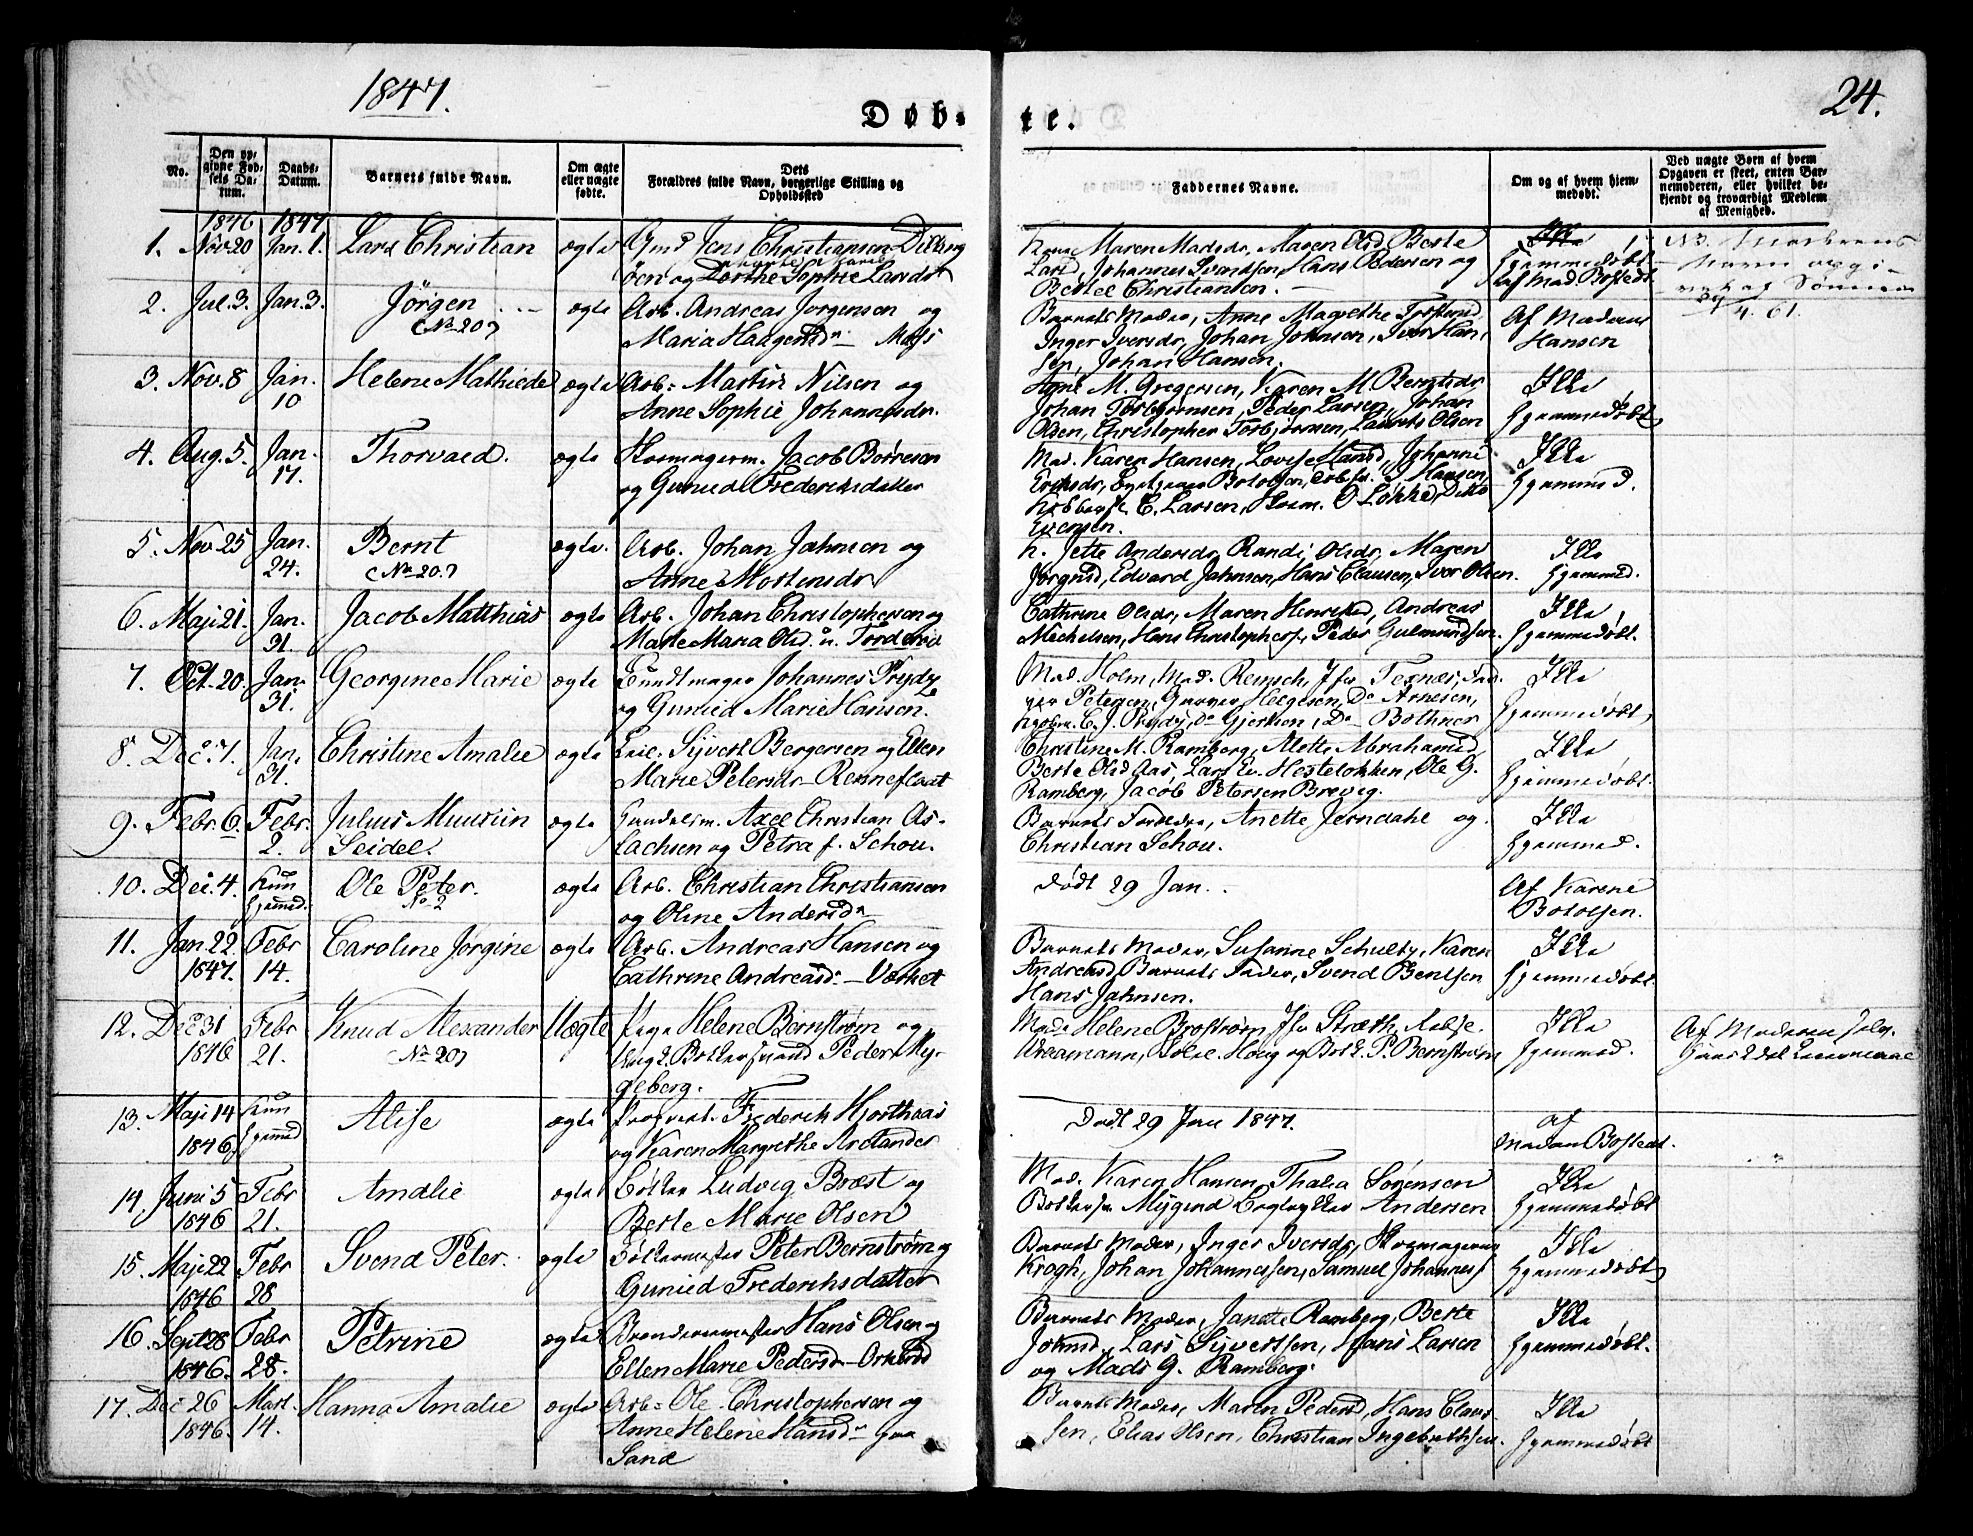 1847.
24.
Døb-
te.
No.
Den op-
givne Fød-
sels Da-
tum.
Daabs-
Datum.
Barnets fulde Navn.
Om ægte
eller uægte
fødte.
Dets
Forældres fulde Navn, borgerlige Stilling og
Opholdssted
Faddernes Navne.
Om og af hvem hjem-
medøbt.
Ved uægte Børn af hvem
Opgaven er skeet, enten Bar-
nemoderen, eller hvilket be-
kjendt og troværdigt Medlem
af Menighed.
1846 1847
1. Nov 20 Jan. 1. Lars Christian ægte Gmd Jens Christiansen
øen og Dorthe Sophie Larsd
Maren Madsdr, Maren Olsd, Berte
Larsd, Johannes Svendsen, Hans Pedersen og
Bertel Christiansen.
Hjemmedøbt
af Mad. Bostedt
4. 61.
2. Jul. 3. Jan. 3. Jörgen ægte Arb. Andreas Jorgensen og
(No 20)
Maria Haagensdr
Barnets Moder, Anne Magrethe
Inger Iversdr, Johan Johnsen, Iver Han,
sen, Johan Hansen.
Af Madame
Hansen
3. Nov. 8 Jan. 10 Helene Mathilde ægte Arb. Martin Nilsen og
Anne Sophie Johannesdr.
M. Gregersen, Karen M. Berntsdr
Johan Torbjörnsen, Peder Larsen, Johan
Olsen, Christopher Torbjörnsen, Laurits Olsen
Ikke
hjemmedøbt
4. Aug. 5. Jan. 17. Thorvald. ægte Skomagerm. Jacob Børresen
og Gunild Frederiksdatter
Mad. Karen Hansen, Lovise Hansd, Johanne
C. Larsen, O Løkke, Ditto
Evensen.
Ikke
hjemmed.
5. Nov. 25 Jan. 24. Bernt ægte. Arb. Johan Jahnsen og
(No 20)
Anne Mortensdr
K. Jette Andersdr, Randi Olsdr, Maren
Jørgensd, Edvard Jahnsen, Hans Clausen, Iver Olsen.
Ikke
hjemmed.
6. Maji 21. Jan. 31. Jacob Matthias ægte Arb. Johan Christophersen og
Maria Olsd.
Cathrine Olsdr, Maren Henriksd, Andreas
Michelsen, Hans Christophers, Peder Gulmundsen.
Ikke
hjemmedøbt.
7. Oct. 20 Jan. 31. Georgine Marie ægte Bundtmager Johannes Prydz
og Gunild Marie Hansen.
Mad. Holm, Mad. Remsch, Jfr
Petersen, Helgesen, Do Arnesen,
C. J. Prydz, Do Gjertsen, Do Bothner
Ikke
hjemmedøbt
8. Dec. 7. Jan. 31. Christine Amalie ægte Sivert Bergersen og Ellen
Marie Petersdr Renneflaat
Christine M. Ramberg, Alette Abrahamsd,
Berte Olsd Aas, Lars Ev. Hesteløkken, Ole G.
Ramberg, Jacob Petersen Brevig.
Ikke
hjemmedøbt.
9. Febr. 6. Febr. 2. Julius Muusün
Seidel. ægte Handelsm. Axel Christian As-
lachsen og Petra f. Schou.
Barnets Forældre, Anette Jerndahl og
Christian Schou.
Ikke
hjemmed.
10. Dec. 4. Kun
hjemmed. Ole Peter.
No 2 ægte Arb. Christian Christiansen
og Oline Andersdr
Dødt 29 Jan.
Af Karene
Botolfsen.
11. Jan. 22. 1847. Febr 14. Caroline Jørgine ægte Arb. Andreas Hansen og
Cathrine Andreasdr. - Værket
Barnets Moder, Susanne Schultz, Karen
Andreasd, Barnets Fader, Svend Bentsen
Hans Jahnsen.
Ikke
hjemmedøbt.
12. Dec 31 1846 Febr 21. Knud Alexander
(No 20) Uægte Pige Helene Bernstrøm og
Ungk. Bødkersvend Peder My-
geberg.
Mad. Helene Brostrøm, Jfr Stræth,
P. Bernstrøm
Ikke
hjemmed.
Af Moderen selv.
13. Maji 14 1846 Kun
hjemmed Alise ægte Frederik Hjorthaas
og Karen Margrethe Arctander
Dødt 29 Jan 1847.
af
Madam Bostedt.
14. Juni 5 1846 Febr 21. Amalie ægte Bødker Ludvig Bræst og
Berte Marie Olsen
Mad. Karen Hansen, Thalia Sørensen
Mygind Andersen
Ikke
hjemmedøbt
15. Maji 22 1846 Febr 28 Svend Peter. ægte Bødkermester Peter Bernstrøm og
Gunild Frederiksdatter
Barnets Moder, Inger Iversdr, Skomagerm
Krogh, Johan Johannessen, Samuel Johannes
Ikke
hjemmedøbt
16. Sept 28 1846. Febr 28. Petrine ægte Hans Olsen og
Ellen Marie Pedersdr
Barnets Moder, Janette Ramberg, Berte
Johnsd, Lars Sivertsen, Hans Larsen
og Mads G. Ramberg.
Ikke
hjemmedøbt.
17. Dec 26 1846. Mart. 14. Hanna Amalie ægte Arb. Ole Christophersen og
Anne Helene Hansdr
Sand
Barnets Moder, Maren Pedersd, Hans Claus-
sen, Elias Olsen, Christian Ingebrethsen.
Ikke
hjemmedøbt